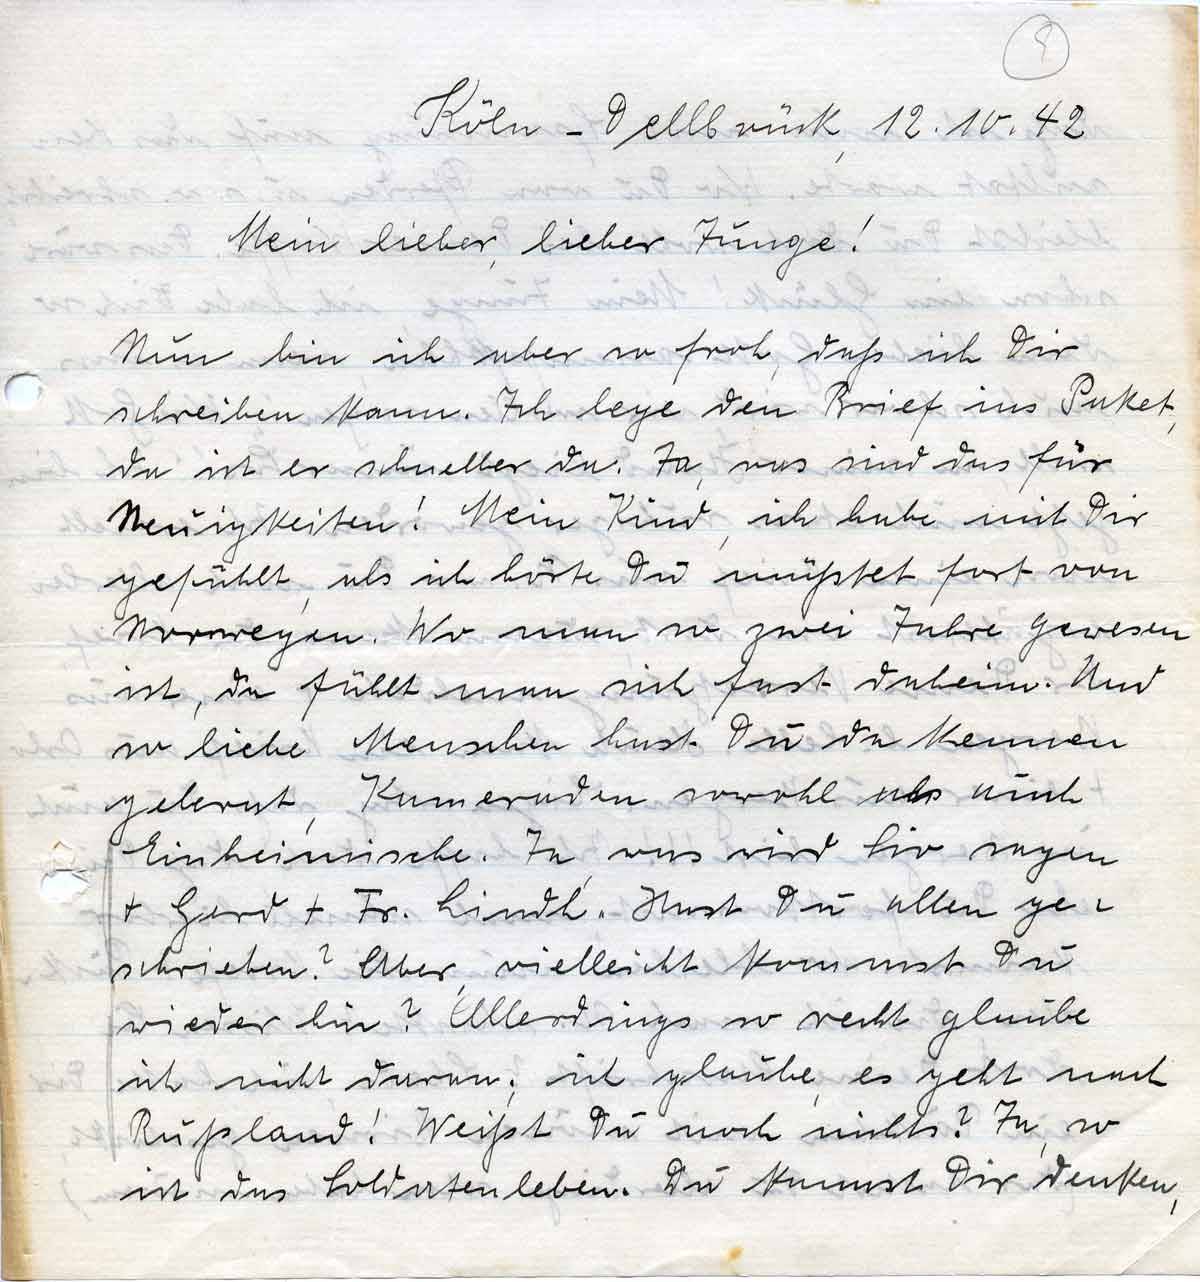 Köln-Dellbrück, 12.10.42
Mein lieber, lieber Junge!
Nun bin ich aber so froh, daß ich Dir
schreiben kann. Ich lege den Brief ins Paket,
da ist er schneller da. Ja, was sind das für
Neuigkeiten! Mein Kind, ich habe mit Dir
gefühlt, als ich hörte Du müßtet fort von
Norwegen. Wo man so zwei Jahre gewesen
ist, da fühlt man sich fast daheim. Und
so liebe Menschen hast Du da kennen
gelernt, Kameraden sowohl als auch
Einheimische. Ja, was wird Liv sagen
+ Gerd + Fr. Lindh. Hast Du allen ge-
schrieben? Aber, vielleicht kommst Du
wieder hin? Allerdings so recht glaube
ich nicht daran; ich glaube, es geht nach
Rußland! Weißt Du noch nichts? Ja, so
ist das Soldatenleben. Du kannst Dir denken,